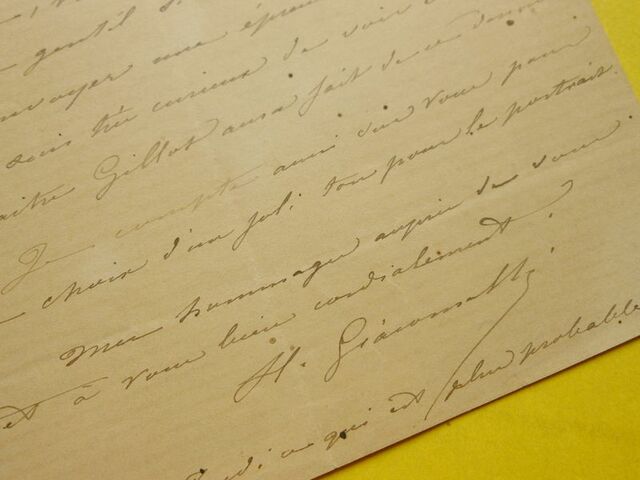 gentil
envoyer une épreuve
suis très curieux de voir
maître Gillot aura fait de ce dessin
Je compte aussi sur vous pour
choix d'un joli ton pour le portrait.
Mes hommages auprès de vous
et à vous bien cordialement.
H. Giacomelli
ce qui est plus probable